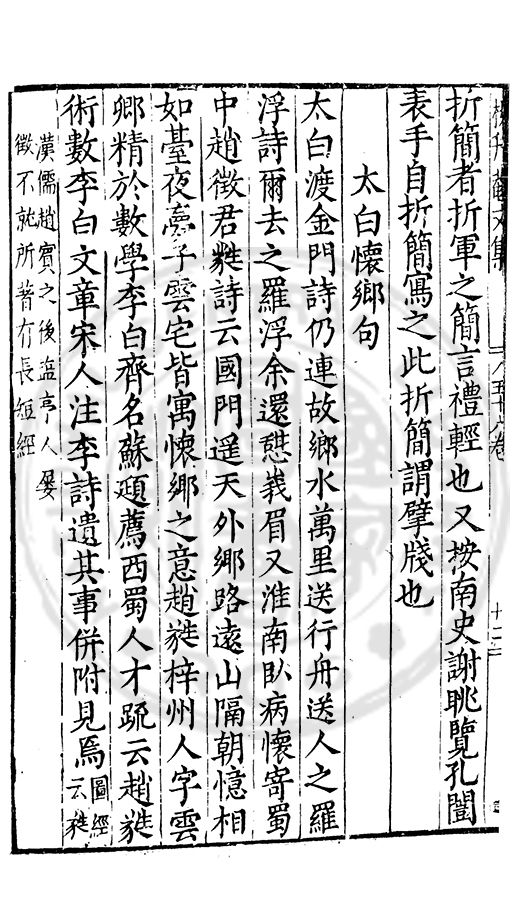 折簡者折軍之簡言禮輕也又按南史謝眺覽孔闓
表手自折簡寫之此折簡謂擘牋也
太白懷鄉句
太白渡金門詩仍連故鄉水萬里送行舟送人之羅
浮詩爾去之羅浮余還憇峩眉又淮南臥病懷寄蜀
中趙徵君蕤詩云國門遥天外鄉路遠山隔朝憶相
如臺夜夢子雲宅皆寓懷鄉之意趙蕤梓州人字雲
卿精於數學李白齊名蘇頲薦西蜀人才疏云趙蕤
術數李白文章宋人注李詩遺其事併附見焉圖經云蕤
漢儒趙賓之後盬亭人屢
徵不就所著有長短經